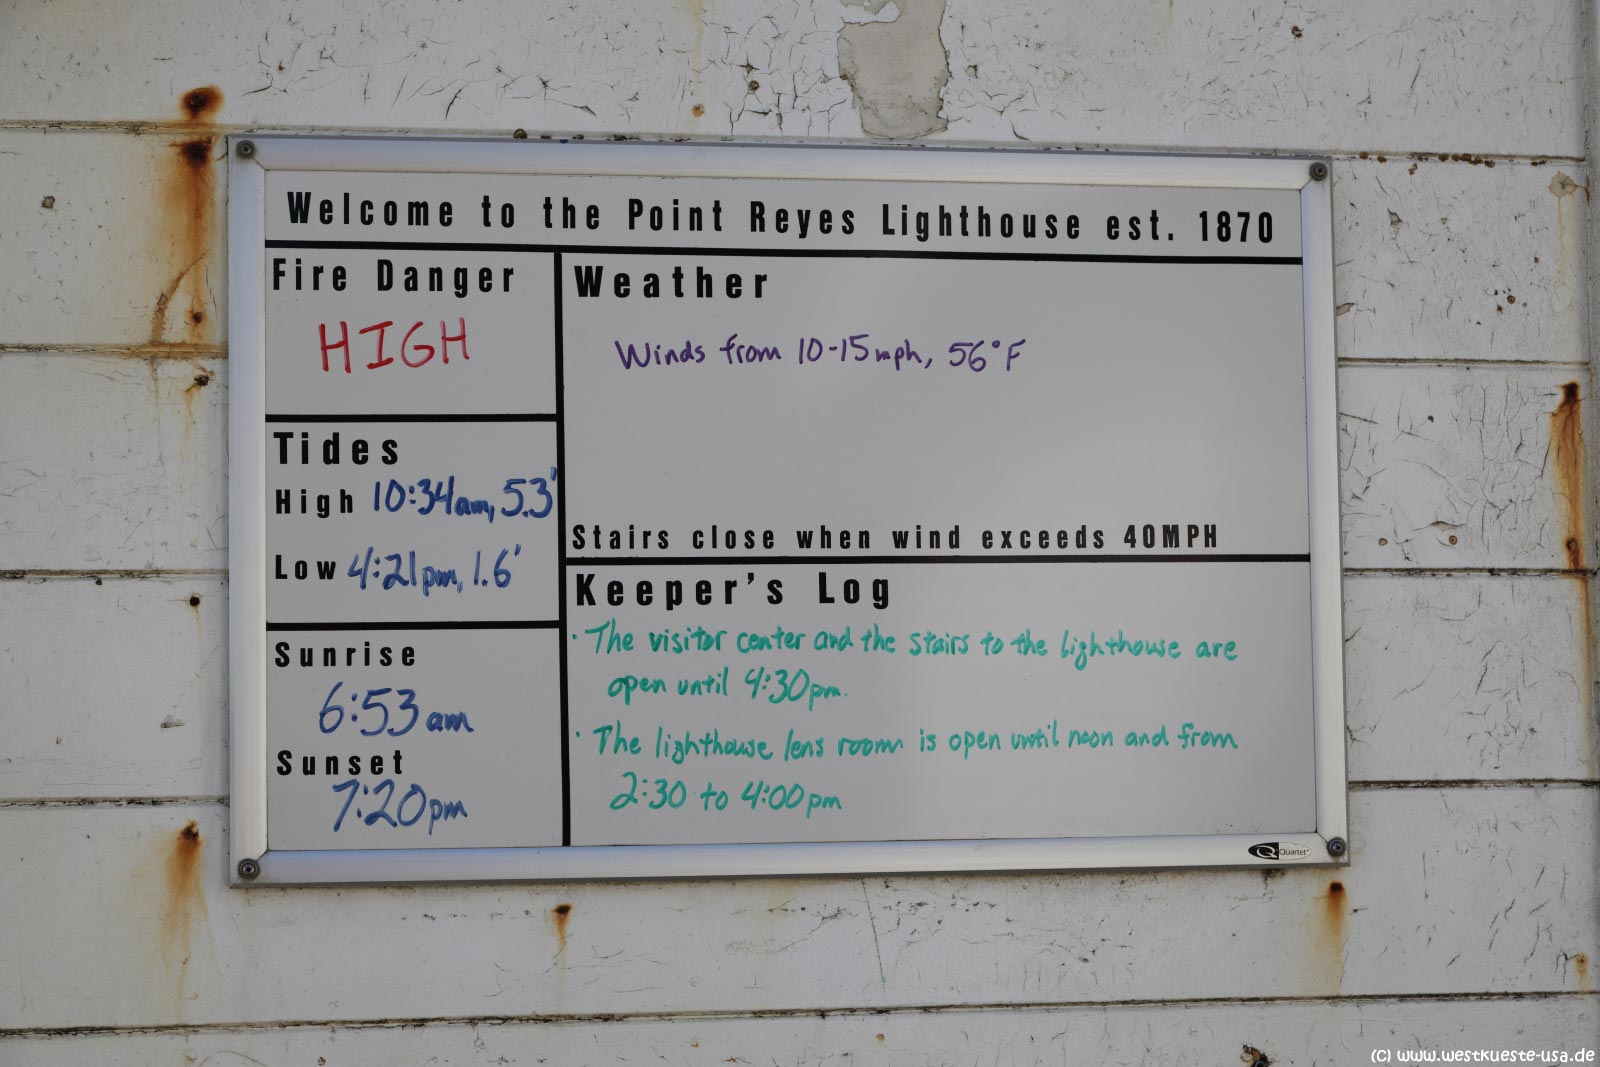 Welcome to the Point Reyes Lighthouse est. 1870
Fire Danger
HIGH
Tides
High 10:34am, 5.3'
Low 4:21pm, 1.6'
Sunrise
6:53 am
Sunset
7:20pm
Weather
Winds from 10-15mph, 56°F
Stairs close when wind exceeds 40MPH
Keeper's Log
· The visitor center and the stairs to the lighthouse are
open until 4:30pm.
· The lighthouse lens room is open until noon and from
2:30 to 4:00pm
Quartet
(c) www.westkueste-usa.de